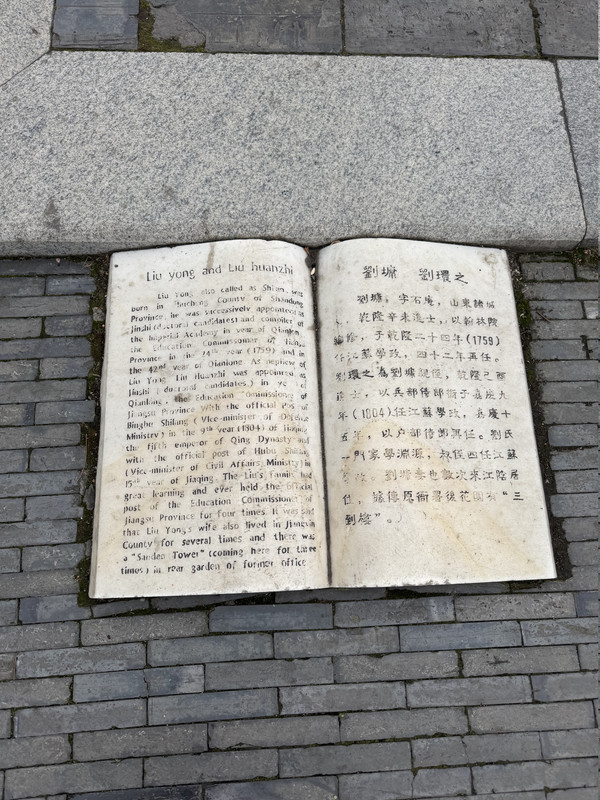 Liu yong and Liu huanzhi
Liu Yong, also called as Shi'an, was
born in Zhucheng County of Shandong
Province, he was successively appointed as
Jinshi (doctoral candidates) and compiler of
the Imperial Academy in year of Qianlong,
the Education Commissioner of Jiangsu
Province in the 24th year (1759) and in
the 42nd year of Qianlong. As nephew of
Liu Yong, Liu Huanzhi was appointed as
Jinshi (doctoral candidates) in year of
Qianlong, the Education Commissioner of
Jiangsu Province with the official post of
Bingbu Shilang (Vice-minister of Defence
Ministry) in the 9th year (1804) of Jiaqing,
the fifth emperor of Qing Dynasty and
with the official post of Hubu Shilang
(Vice-minister of Civil Affairs Ministry) in
15th year of Jiaqing. The Liu's family had
great learning and ever held the official
post of the Education Commissioner of
Jiangsu Province for four times. It was said
that Liu Yong's wife also lived in Jiangyin
County for several times and there was
a "Sandao Tower" (coming here for three
times) in rear garden of former office
劉墉 劉環之
劉墉，字石庵，山東諸城
人，乾隆辛未進士，以翰林院
編修，于乾隆二十四年(1759)
任江蘇學政，四十二年再任。
劉環之為劉墉親侄，乾隆己酉
進士，以兵部侍郎銜于嘉慶九
年(1804)任江蘇學政，嘉慶十
五年，以户部侍郎再任。劉氏
一門家學淵源，叔侄四任江蘇
學政，劉墉妻也數次來江陰居
住，據傳原衙署後花園有“三
到樓”。